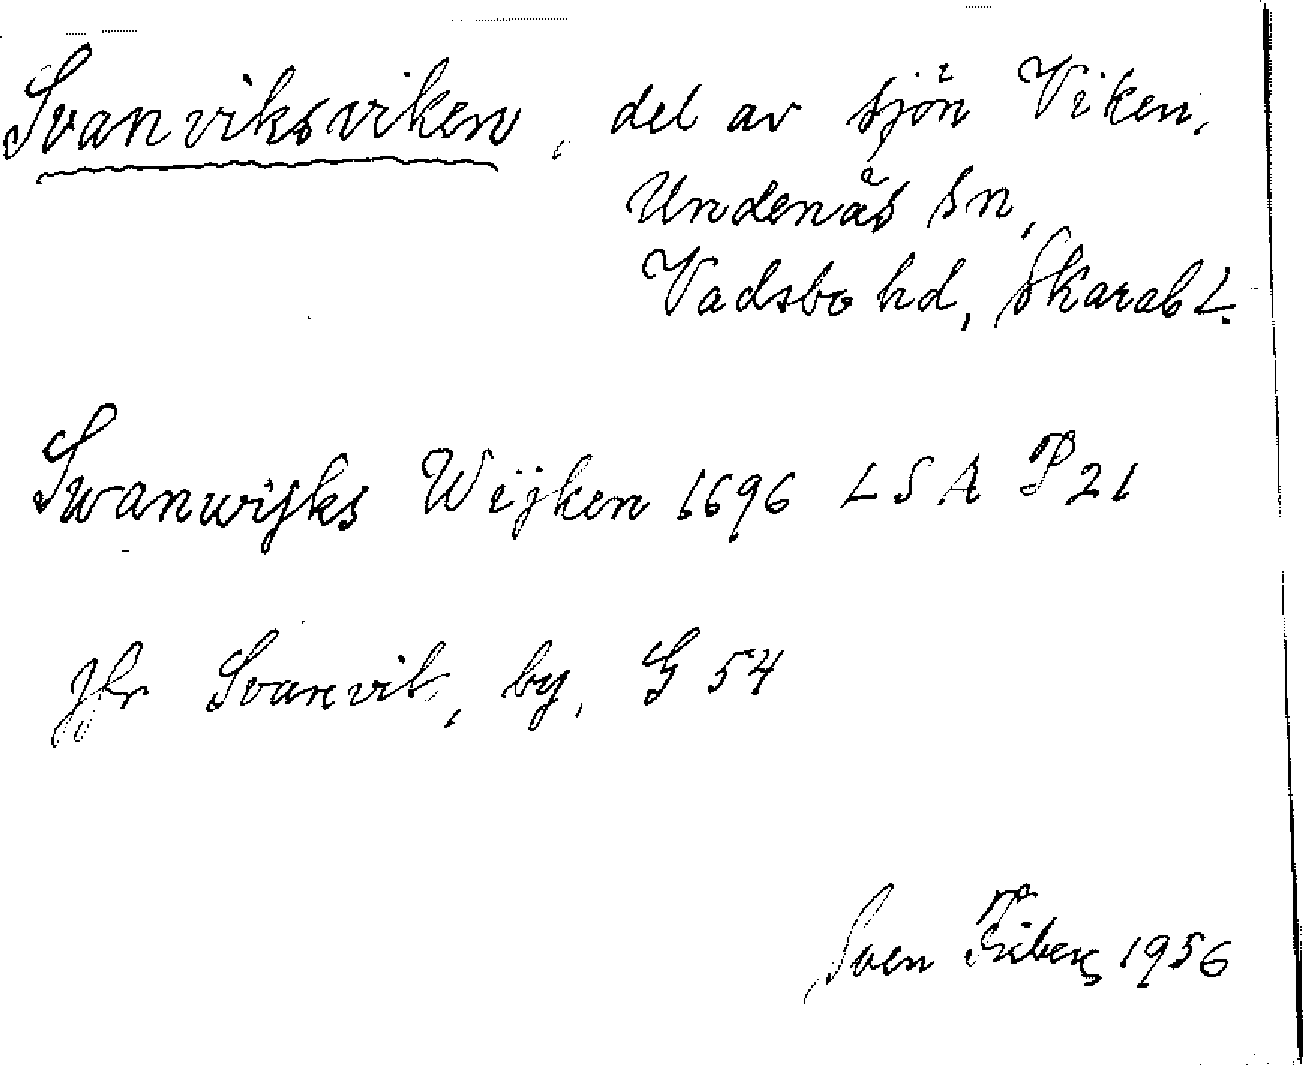 Svanviksviken, del av sjön Viken,
Undenäs sn,
Vadsbo hd, Skarab L.
Swanwijks Wijken 1696 LSA P 21
Jfr Svanvik, by, G 54
Sven Friberg 1956